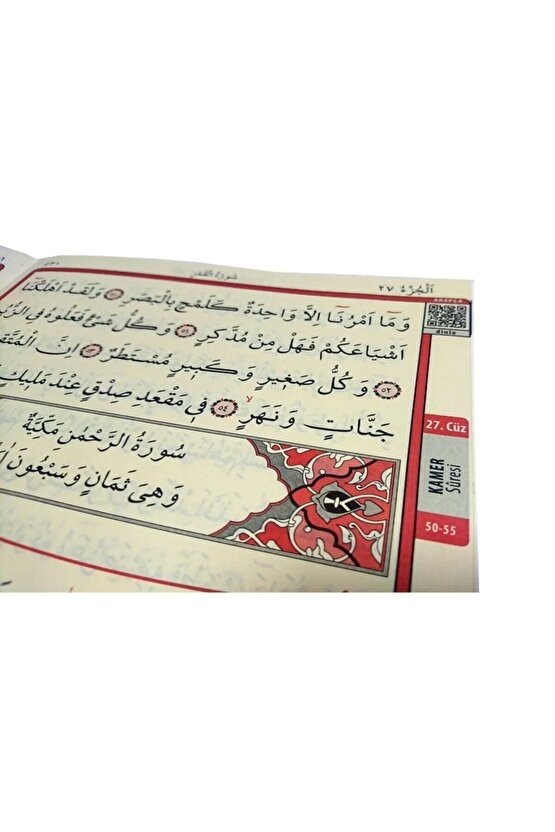 سورة القمر
اَلْجُزْءُ ٢٧
وَمَٓا اَمْرُنَٓا اِلَّا وَاحِدَةٌ كَلَمْحٍ بِالْبَصَرِ ﴿٥٠﴾ وَلَقَدْ اَهْلَكْنَٓا
اَشْيَاعَكُمْ فَهَلْ مِنْ مُدَّكِرٍ ﴿٥١﴾ وَكُلُّ شَيْءٍ فَعَلُوهُ فِي
﴿٥٢﴾ وَكُلُّ صَغٖيرٍ وَكَبٖيرٍ مُسْتَطَرٌ ﴿٥٣﴾ اِنَّ
جَنَّاتٍ وَنَهَرٍ ﴿٥٤﴾ فٖي مَقْعَدِ صِدْقٍ عِنْدَ مَلٖيكٍ
سُورَةُ الرَّحْمٰنِ مَكِّيَّةٌ
وَهِيَ ثَمَانٍ وَسَبْعُونَ
ARAPÇA
dinle
27. Cüz
KAMER
Sûresi
50-55